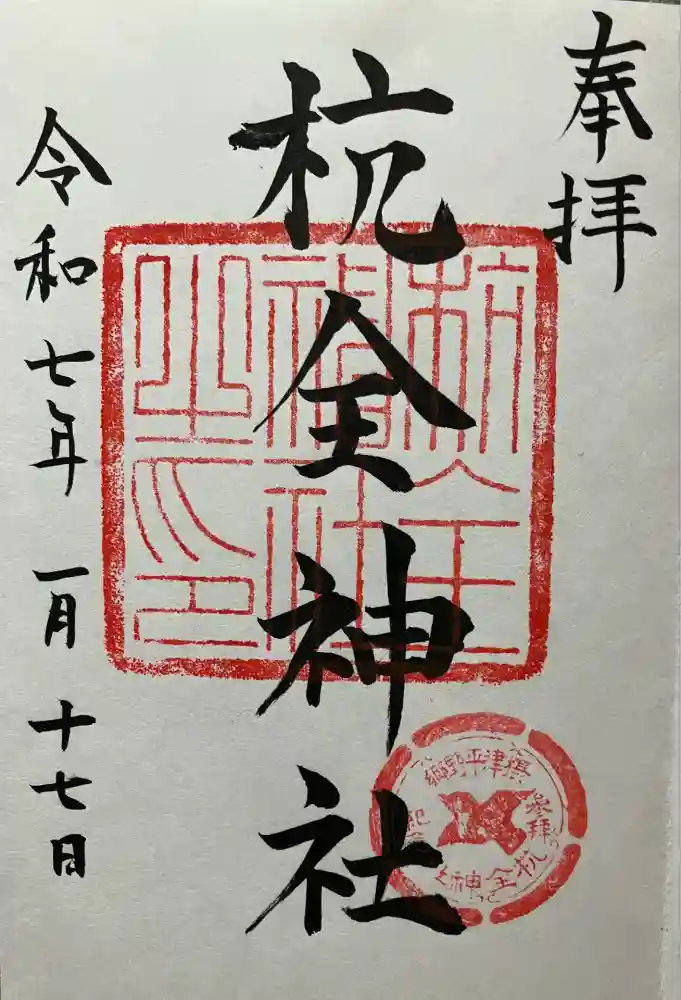 奉拝
杭全神社
令和七年一月十七日
杭全
神社
之印
摂津平野郷
参拝
杭全神社